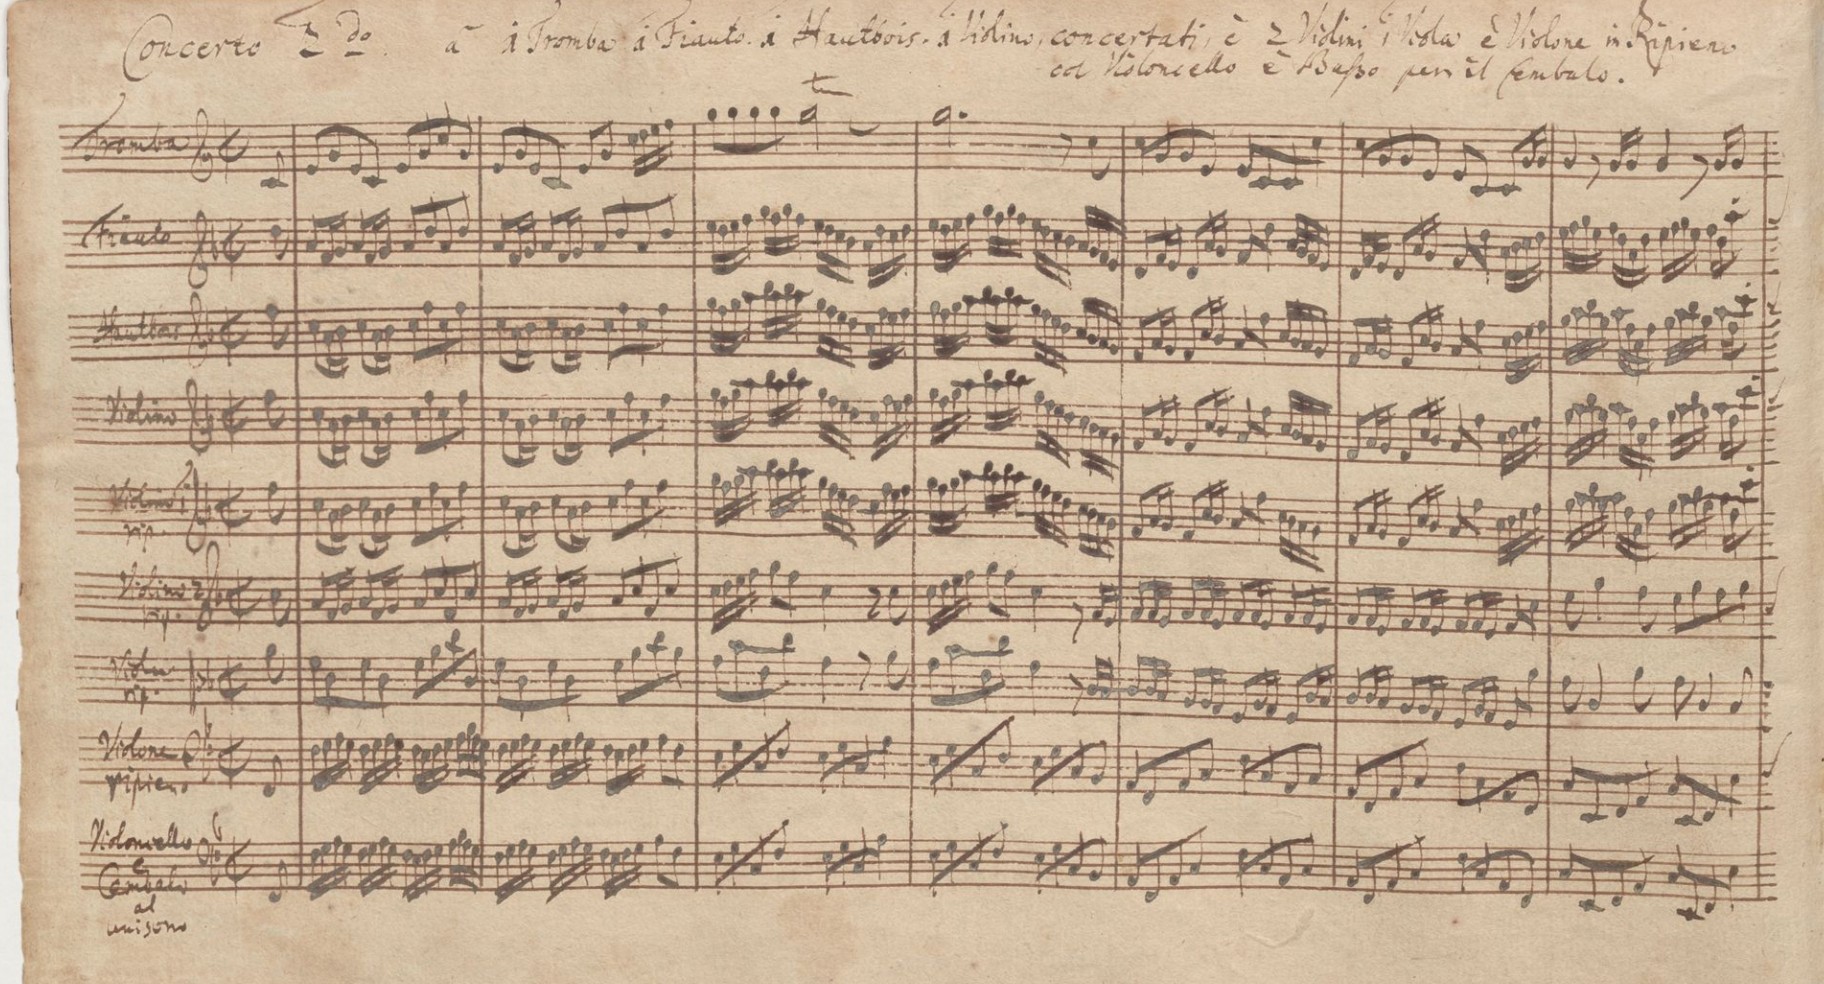 Concerto 2do. â 1 Tromba 1 Fiauto. 1 Hautbois. 1 Violino, concertati, è 2 Violini 1 Viola è Violone in Ripieno
col Violoncello è Basso per il Cembalo.
tr
Tromba
Fiauto
Hautbois
Violino
Violino 1
rip.
Violino 2
rip.
Viola
rip.
Violone
ripieno
Violoncello
è
Cembalo
al
unisono